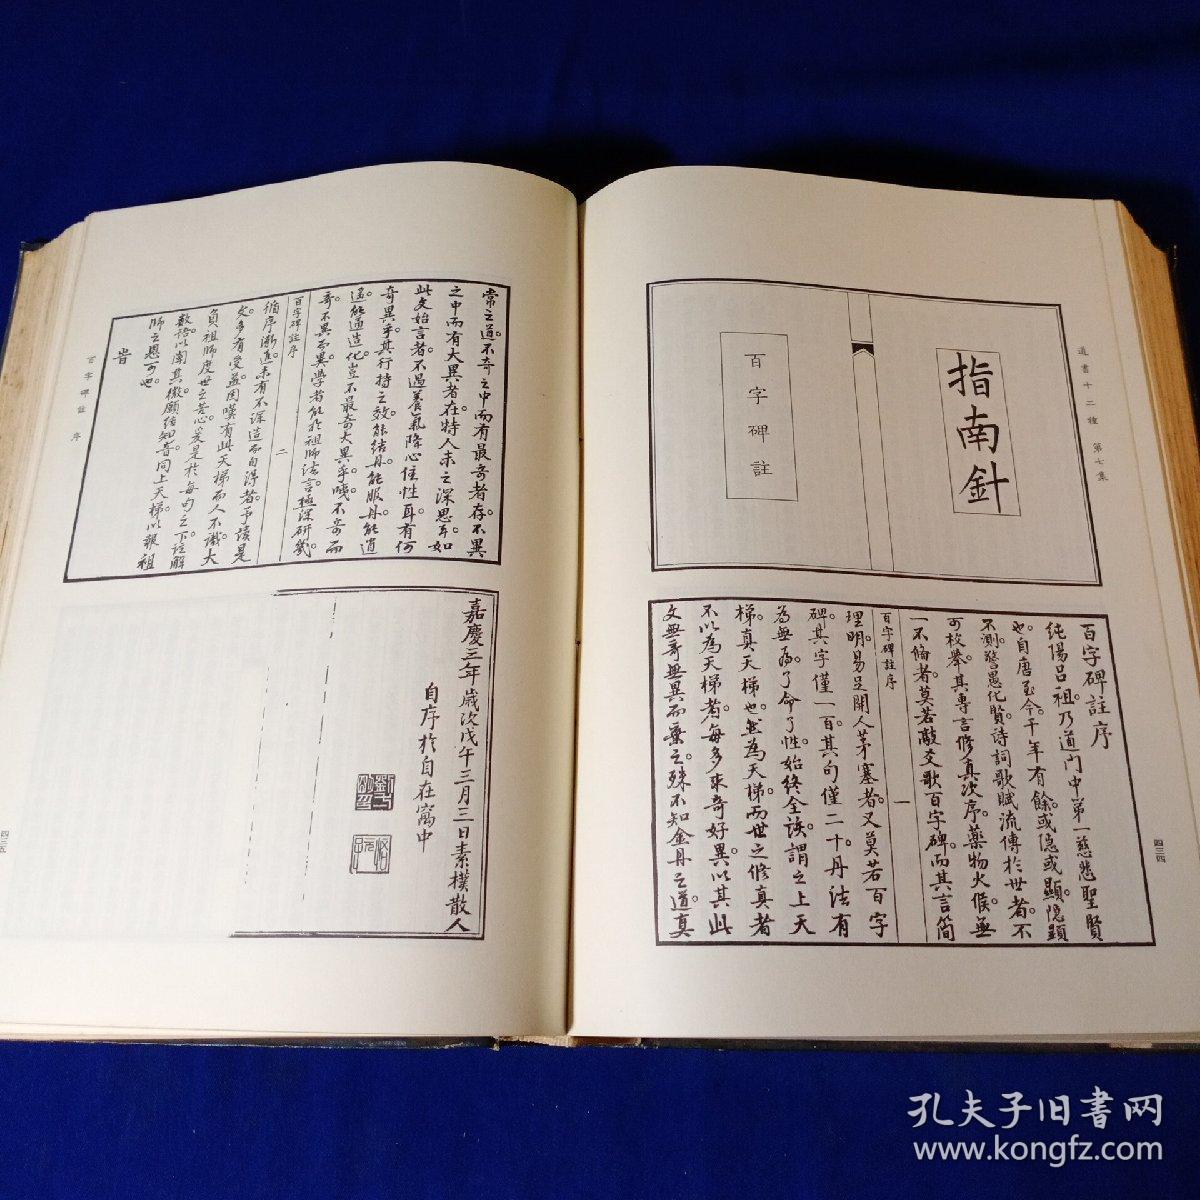 道書十二種 第七集
指南針
百字碑註
百字碑註序
純陽呂祖。乃道門中第一慈悲聖賢
也。自唐至今。千年有餘。或隱或顯。隱顯
不測。警愚化賢。詩詞歌賦。流傳於世者。不
可枚舉。其專言修真次序。藥物火候。無
一不備者。莫若敲爻歌百字碑。而其言簡
百字碑註序
一
理明。易足開人茅塞者。又莫若百字
碑。其字僅一百。其句僅二十。丹法有
為無為。了命了性。始終全該。謂之上天
梯。真天梯也。然為天梯。而世之修真者
不以為天梯者。每多求奇好異。以其此
文無奇無異而棄之。殊不知金丹之道。真
四三四
常之道。不奇之中而有最奇者存。不異
之中而有大異者在。特人未之深思耳。如
此文始言者。不過養氣降心住性耳。有何
奇異乎。其行持之效。能結丹。能服丹。能逍
遙。能通造化。豈不最奇大異乎。噫。不奇而
奇。不異而異。學者能於祖師法言。極深研幾。
百字碑註序
二
循序漸進。未有不深造而自得者。予讀是
文。多有受益。因嘆有此天梯而人不識。大
負祖師度世之苦心。爰是於每句之下註解
數語。以南其檄。願結知音。同上天梯。以報祖
師之恩可也。
旹
嘉慶三年歲次戊午三月三日素樸散人
自序於自在窩中
百字碑註 序
四三五
孔夫子旧書网
www.kongfz.com